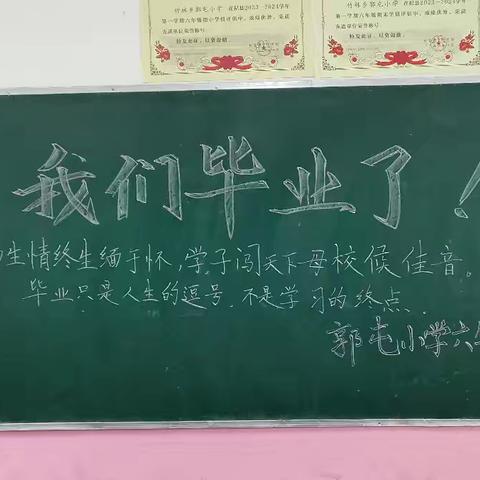 竹林乡郭屯小学 在积慧2023-2024学年
第一学期六年级期末学情评估中,成绩优异,荣获
特发此证,以资鼓励。
竹林乡郭屯小学 在积慧2023-2024学年
第一学期六年级期末学情评估中,成绩优异,荣获
特发此证,以资鼓励。
我们毕业了!
生情终生缅于怀,学子闯天下母校候佳音。
毕业只是人生的逗号.不是学习的终点.
郭屯小学六